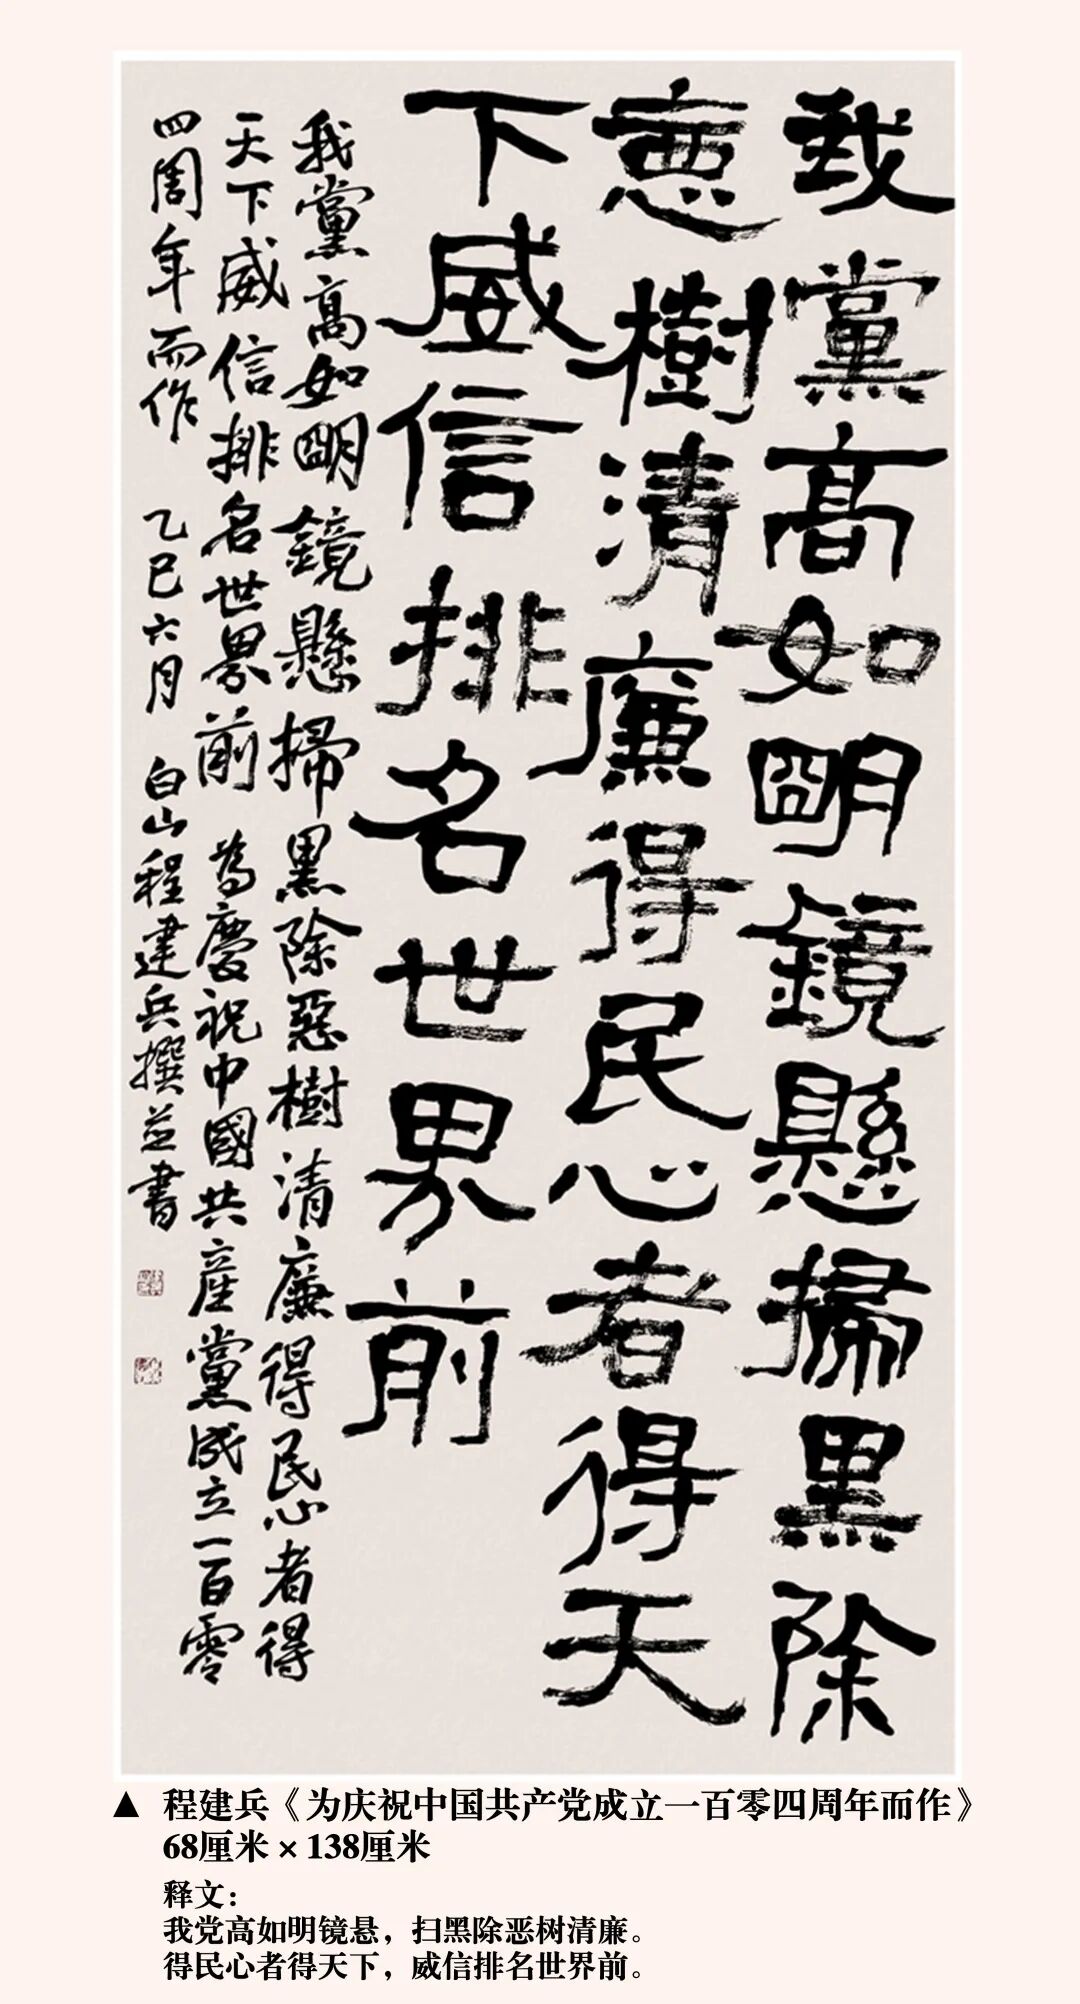 我黨高如明鏡懸掃黑除
惡樹清廉得民心者得天
下威信排名世界前
我黨高如明鏡懸掃黑除惡樹清廉得民心者得
天下威信排名世界前 為慶祝中國共產黨成立一百零
四周年而作 乙巳六月 白山程建兵撰並書
▲ 程建兵《为庆祝中国共产党成立一百零四周年而作》
68厘米 × 138厘米
释文：
我党高如明镜悬，扫黑除恶树清廉。
得民心者得天下，威信排名世界前。